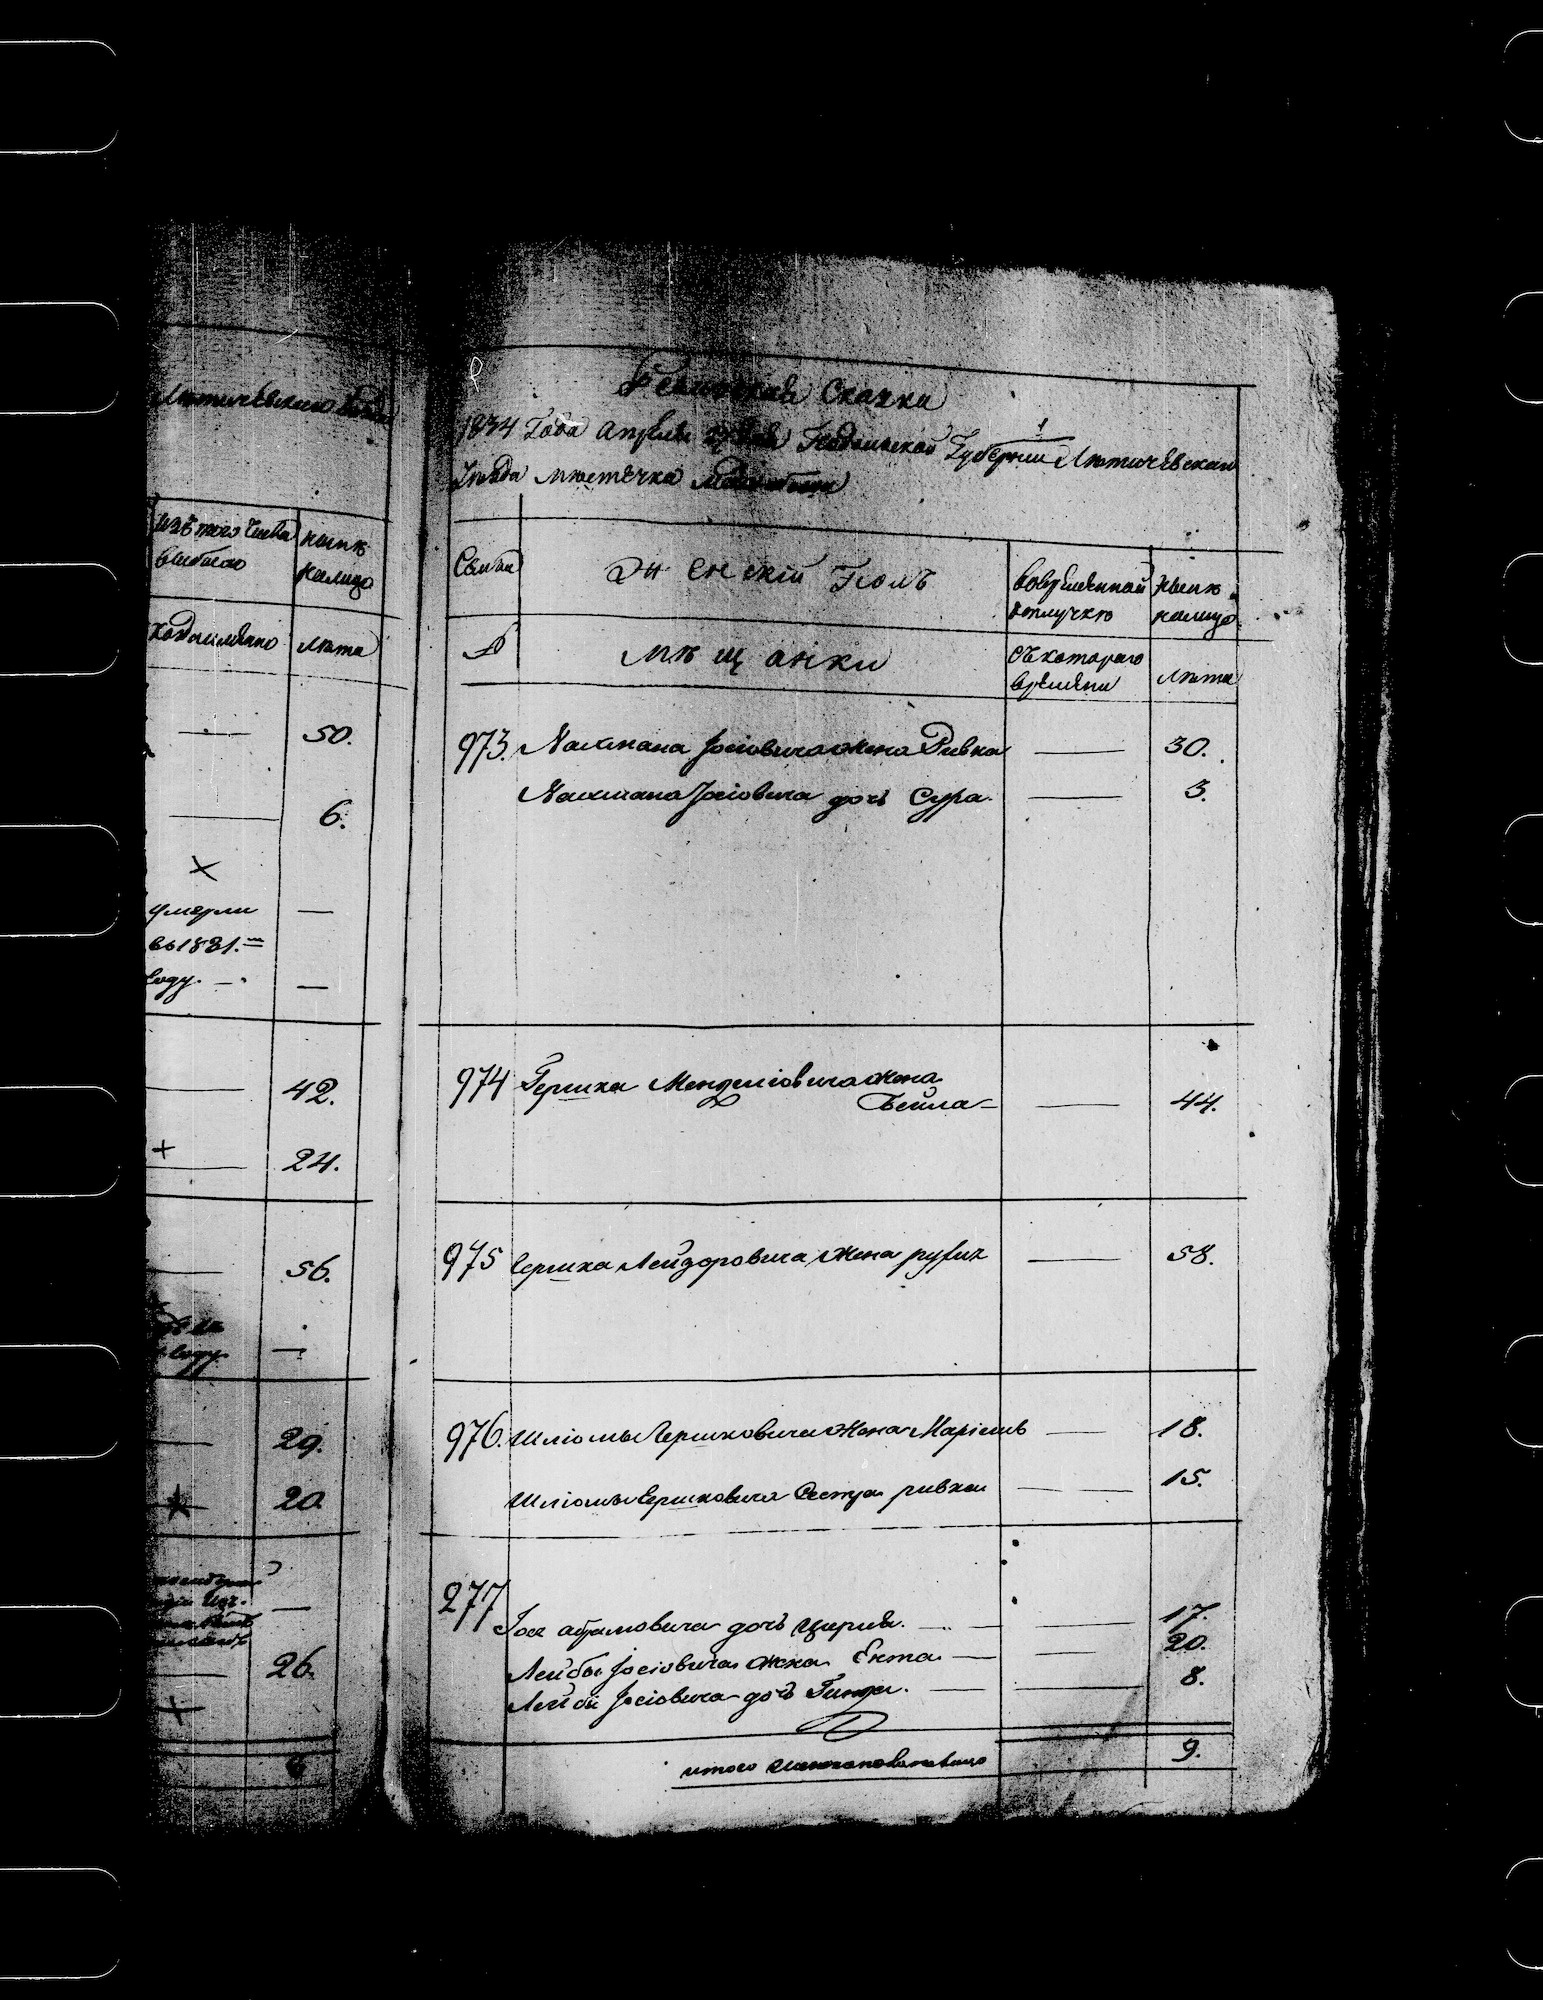 Лѣтичевскаго
изъ того числа
выбыло
нынѣ
налицо
когда имянно
лѣта
50.
6.
умерли
во 1831.
году.
42.
24.
56.
году
29.
20
26.
Ревизская Сказка
1834 Года Апрѣля Подольской Губернии Лѣтичевскаго
Уезда мѣстечка
Семьи
Женский Полъ
Во временной
отлучкѣ
нынѣ
налицо.
№
Мѣщанки
съ котораго
времяни
лѣта
973. Нахмана Іосіовича жена Ривка — 30.
Нахмана Іосіовича дочь Сура. — 3.
974 Гершка Менделіовича жена
Бейла — 44.
975 Гершка Лейзоровича жена — 58.
976. Шліомы Гершковича жена Маріемъ — 18.
Шліомы Гершковича Сестра ривка — 15.
277
Іося абрамовича дочь Цирля. — 17.
Лейбы Іосіовича жена Ента — 20.
Лейбы Іосіовича дочь — 8.
итого женскаго пола налицо 9.